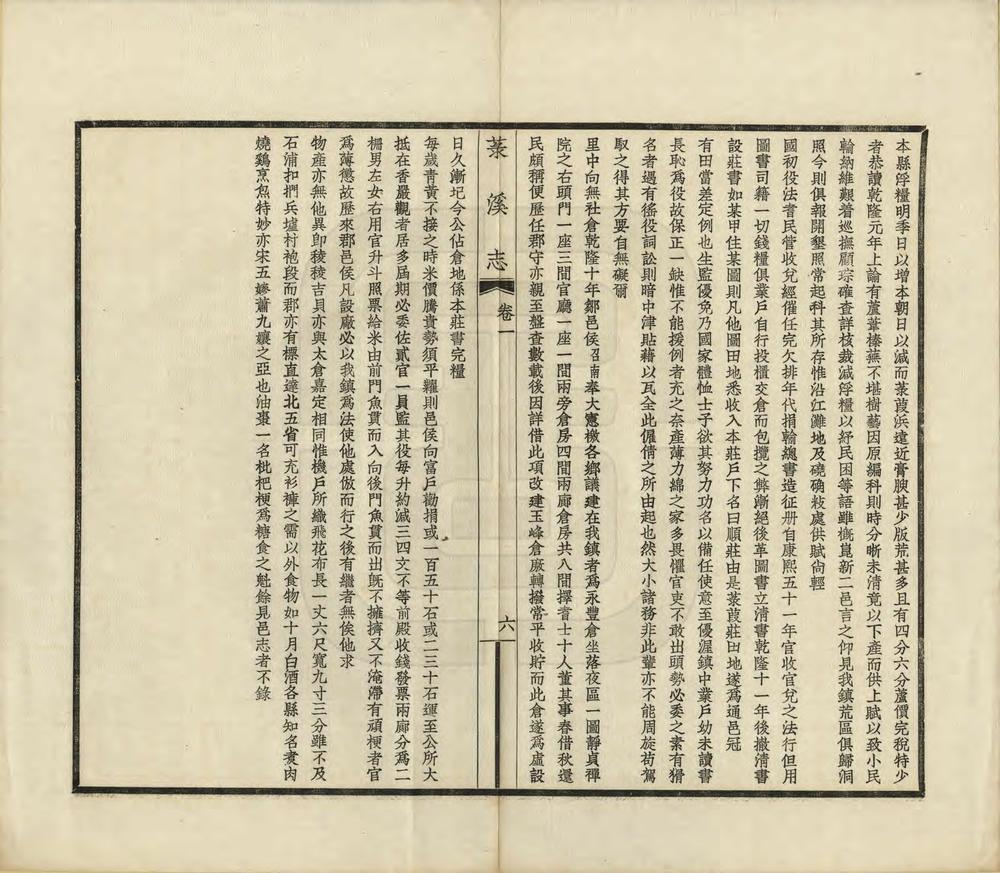 本縣浮糧明季日以增本朝日以減而菉葭浜遠近膏腴甚少版荒甚多且有四分六分蘆價完稅特少
者恭讀乾隆元年上諭有蘆葦榛蕪不堪樹藝因原編科則時分晰未清竟以下產而供上賦以致小民
輸納維艱着巡撫顧琮確查詳核裁減浮糧以紓民困等語雖槪崑新二邑言之仰見我鎮荒區俱歸洞
照今則俱報開墾照常起科其所存惟沿江灘地及磽确敍處供賦尙輕
國初役法耆民營收兌經催任完欠排年代捐輸總書造征册自康熙五十一年官收官兌之法行但用
圖書司籍一切錢糧俱業戶自行投櫃交倉而包攬之弊漸絕後革圖書立清書乾隆十一年後撤清書
設莊書如某甲住某圖則凡他圖田地悉收入本莊戶下名曰順莊由是菉葭莊田地遂爲通邑冠
有田當差定例也生監優免乃國家體恤士子欲其努力功名以備任使意至優渥鎮中業戶幼未讀書
長恥爲役故保正一缺惟不能援例者充之奈產薄力綿之家多畏懼官吏不敢出頭勢必委之素有猾
名者遇有徭役詞訟則暗中津貼藉以瓦全此僱倩之所由起也然大小諸務非此輩亦不能周旋苟駕
馭之得其方要自無礙爾
里中向無社倉乾隆十年鄒邑侯召南奉大憲檄各鄉議建在我鎮者爲永豐倉坐落夜區一圖靜貞禪
院之右頭門一座三間官廳一座一間兩旁倉房四間兩廊倉房共八間擇耆士十人董其事春借秋還
民頗稱便歷任郡守亦親至盤查數載後因詳借此項改建玉峰倉廠轉撥常平收貯而此倉遂爲虛設
菉溪志 卷一 六
日久漸圮今公佔倉地係本莊書完糧
每歲青黃不接之時米價騰貴勢須平糶則邑侯向富戶勸捐或一百五十石或二三十石運至公所大
抵在香嚴觀者居多屆期必委佐貳官一員監其役每升約減三四文不等前殿收錢發票兩廊分爲二
柵男左女右用官升斗照票給米由前門魚貫而入向後門魚貫而出旣不擁擠又不淹滯有頑梗者官
爲薄懲故歷來郡邑侯凡設廠必以我鎮爲法使他處倣而行之後有繼者無俟他求
物產亦無他異卽稜稜吉貝亦與太倉嘉定相同惟機戶所織飛花布長一丈六尺寬九寸三分雖不及
石浦扣捫兵墟村袍段而郡亦有標直達北五省可充衫褲之需以外食物如十月白酒各縣知名煑肉
燒鷄烹魚特妙亦宋五嫂蕭九孃之亞也油棗一名枇杷梗爲糖食之魁餘見邑志者不錄